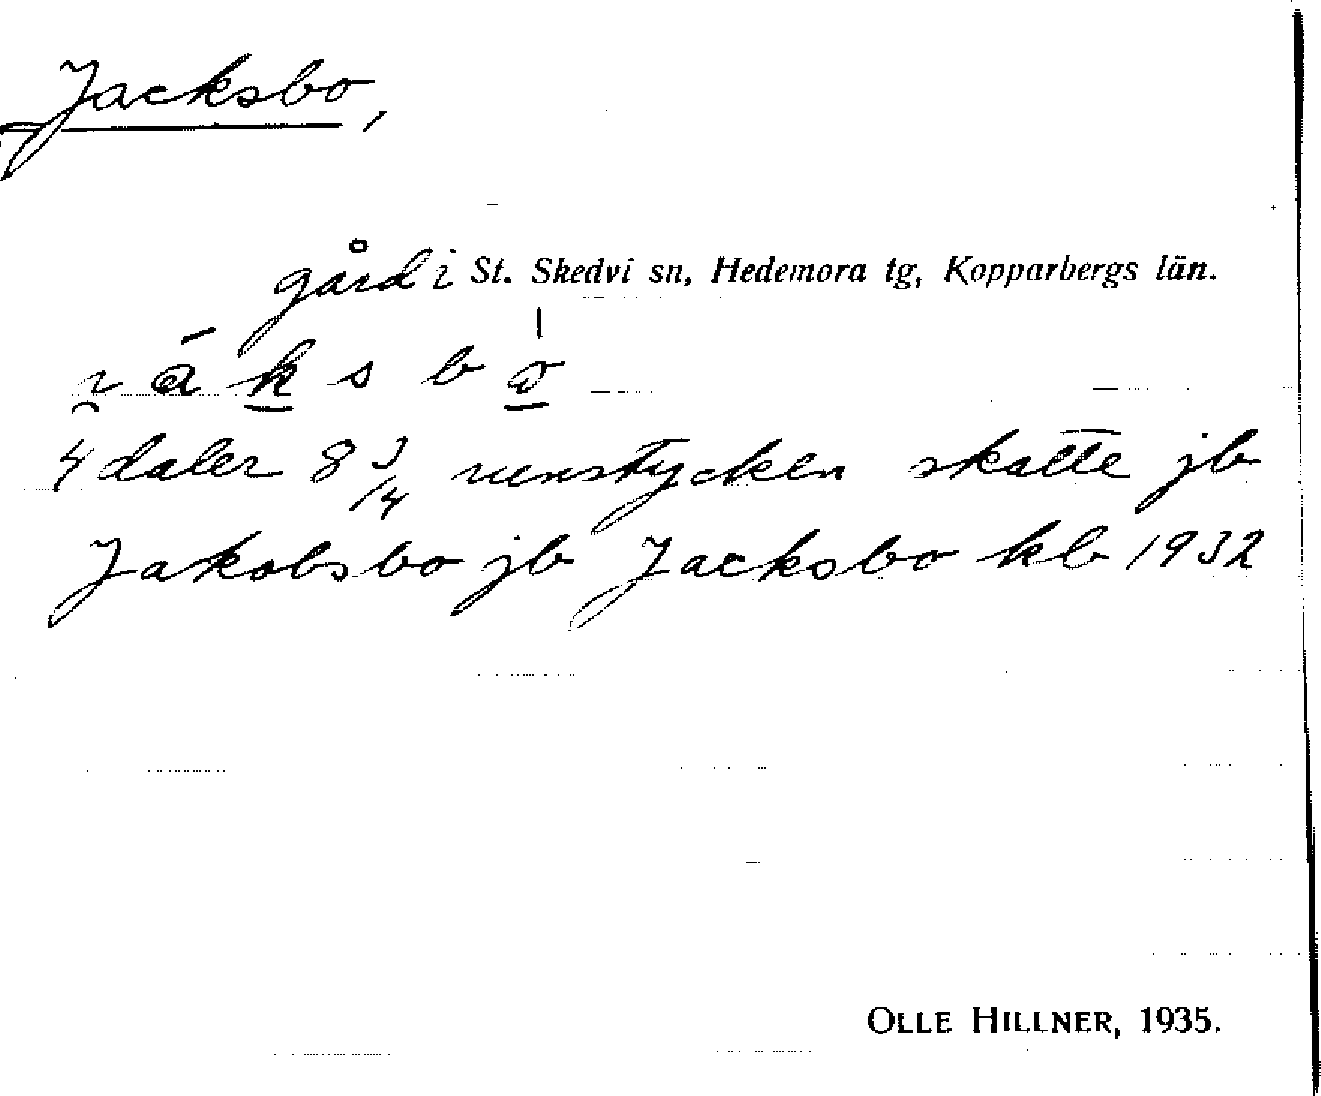 Jacksbo,
gård i St. Skedvi sn, Hedemora tg, Kopparbergs län.
4 daler 8 3/4 runstycken skatte jb
Jakobsbo jb Jacksbo kb 1932
OLLE HILLNER, 1935.